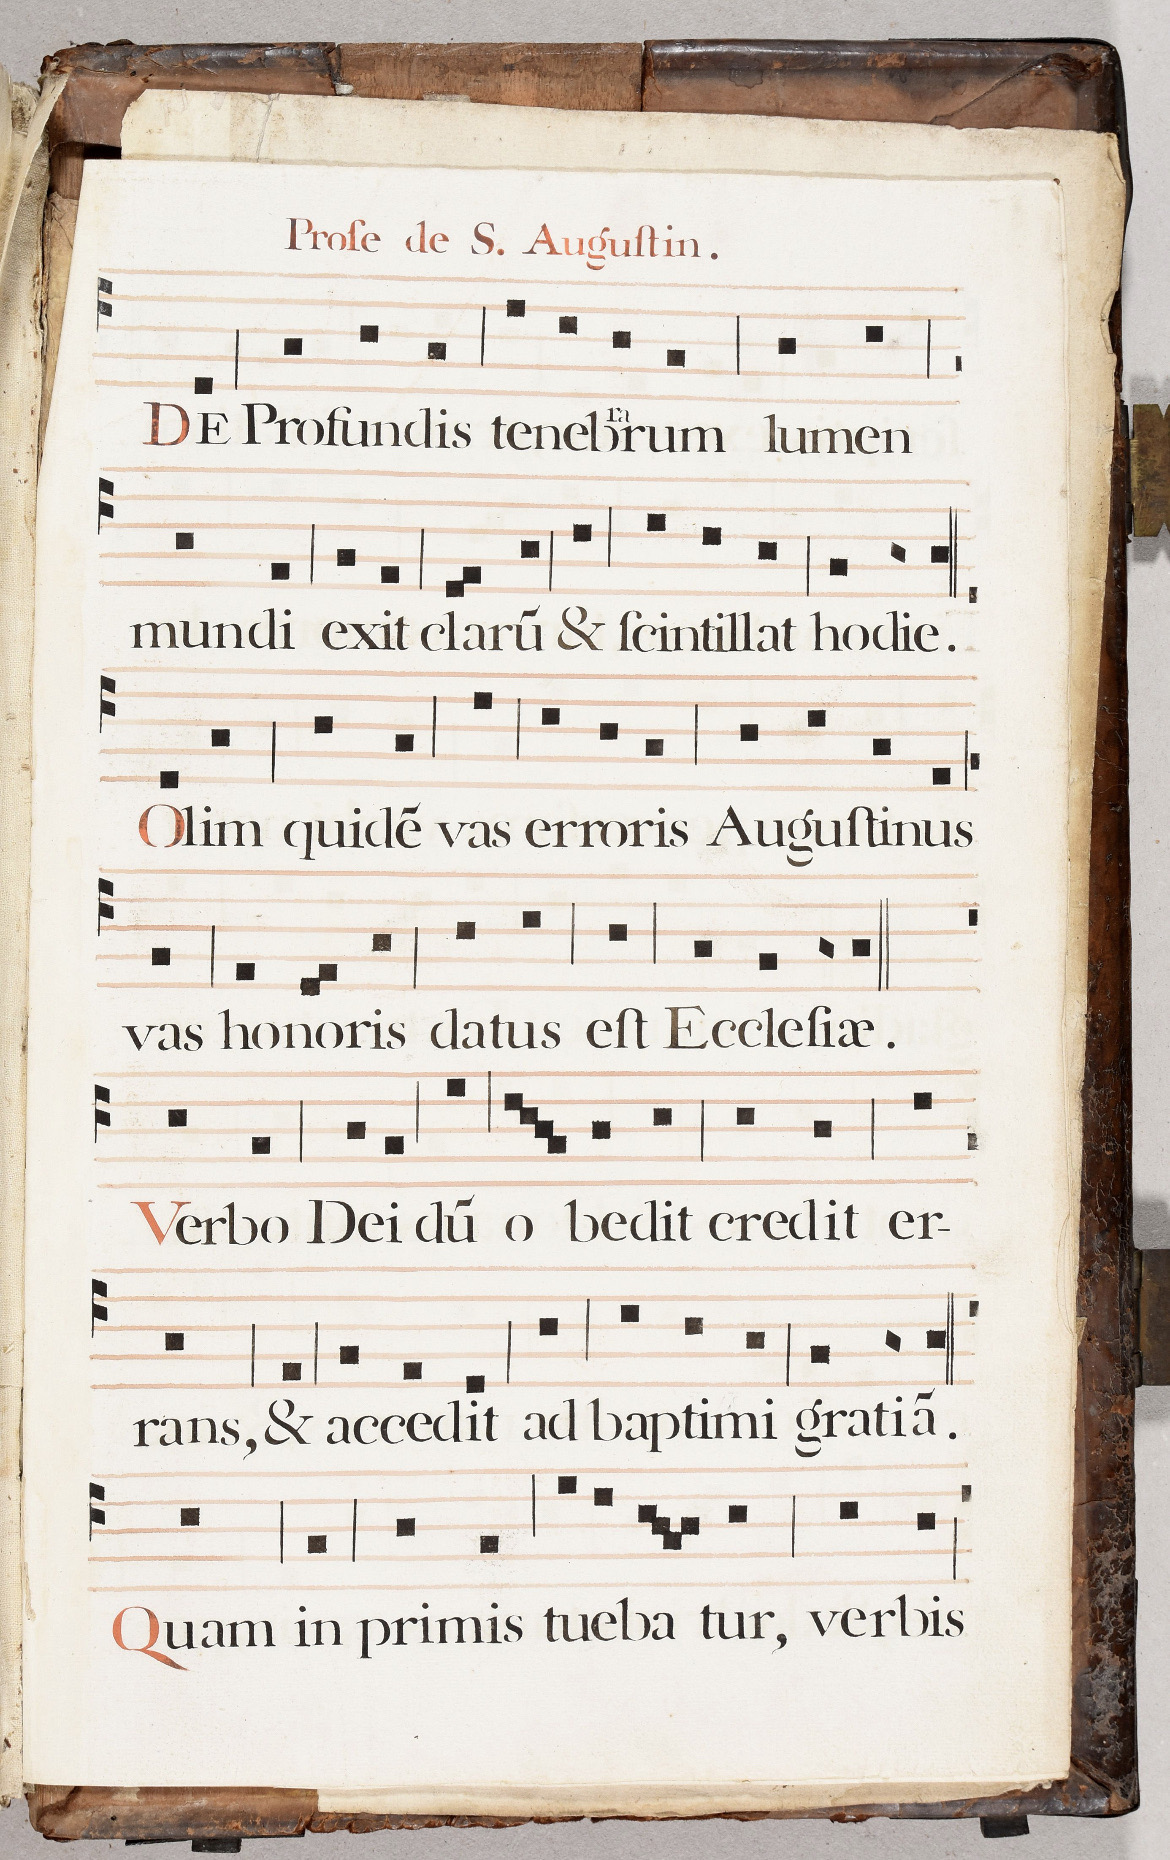 Proſe de S. Auguſtin.
DE Profundis tenebrarum lumen
mundi exit clarũ & ſcintillat hodie.
Olim quidẽ vas erroris Auguſtinus
vas honoris datus eſt Eccleſiæ.
Verbo Dei dũ o bedit credit er-
rans, & accedit ad baptimi gratiã.
Quam in primis tueba tur, verbis